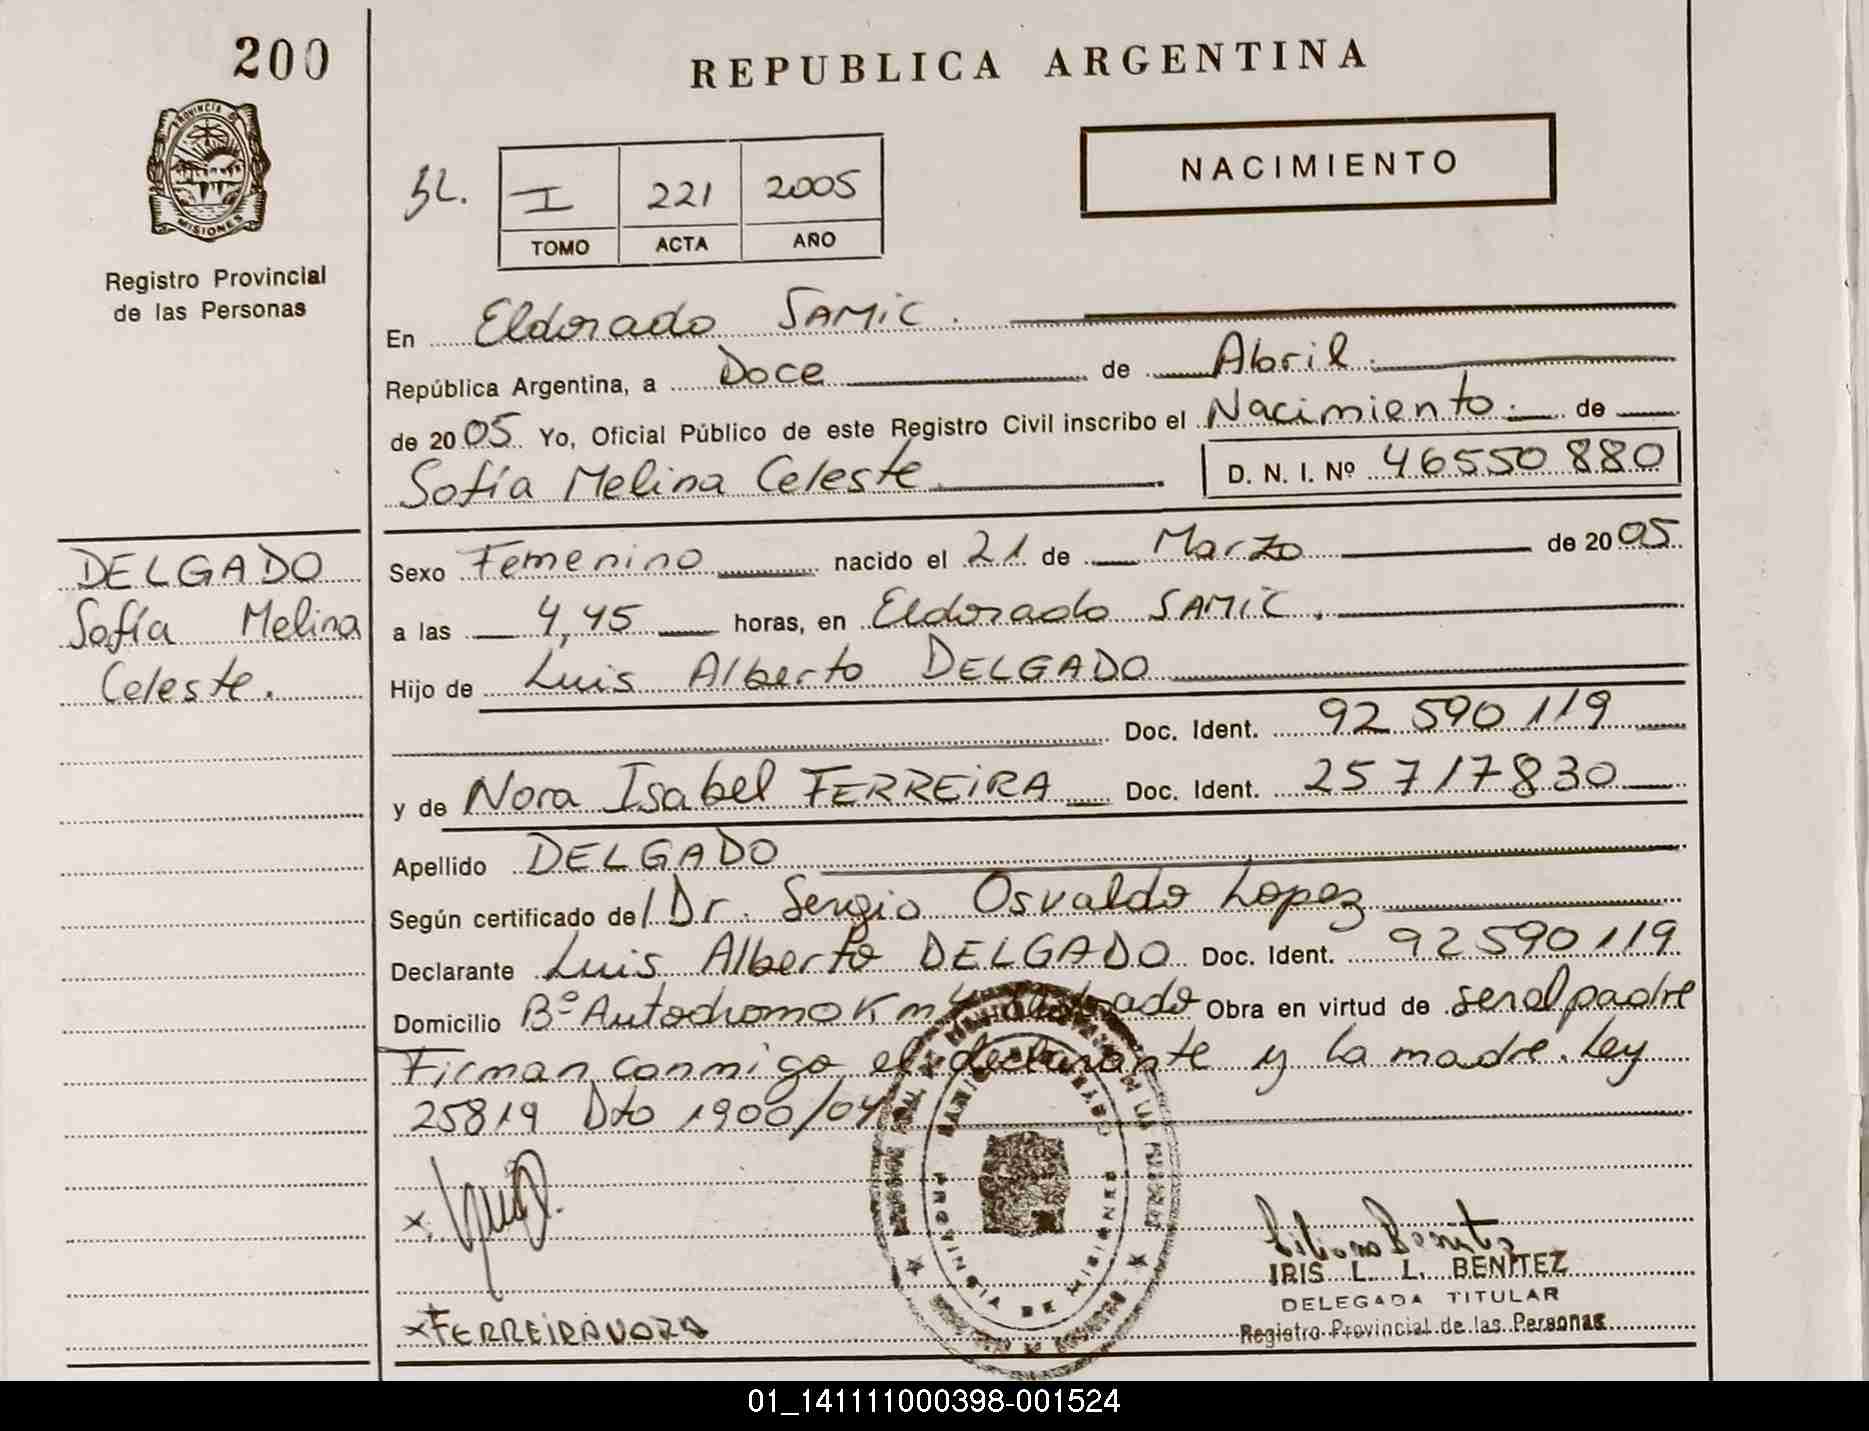 200
REPUBLICA ARGENTINA
PROVINCIA DE
MISIONES
Registro Provincial
de las Personas
NACIMIENTO
I 221 2005
TOMO ACTA AÑO
En Eldorado SAMIC.
República Argentina, a Doce de Abril.
de 2005 Yo, Oficial Público de este Registro Civil inscribo el Nacimiento. de
Sofía Melina Celeste D. N. I. Nº 46550880
DELGADO
Sofía Melina
Celeste.
Sexo Femenino nacido el 21 de Marzo de 2005
a las 4,45 horas, en Eldorado SAMIC.
Hijo de Luis Alberto DELGADO
Doc. Ident. 92 590 119
y de Nora Isabel FERREIRA Doc. Ident. 25 717830
Apellido DELGADO
Según certificado del Dr. Sergio Osvaldo Lopez
Declarante Luis Alberto DELGADO Doc. Ident. 92590119
Domicilio Bº Autodromo Km 4 Eldorado Obra en virtud de ser al padre
Firman conmigo el declarante y la madre. Ley
25819 Dto 1900/04
PROVINCIA DE MISIONES
x
x FERREIRA NORA
IRIS L. L. BENITEZ
DELEGADA TITULAR
Registro Provincial de las Personas
01_141111000398-001524